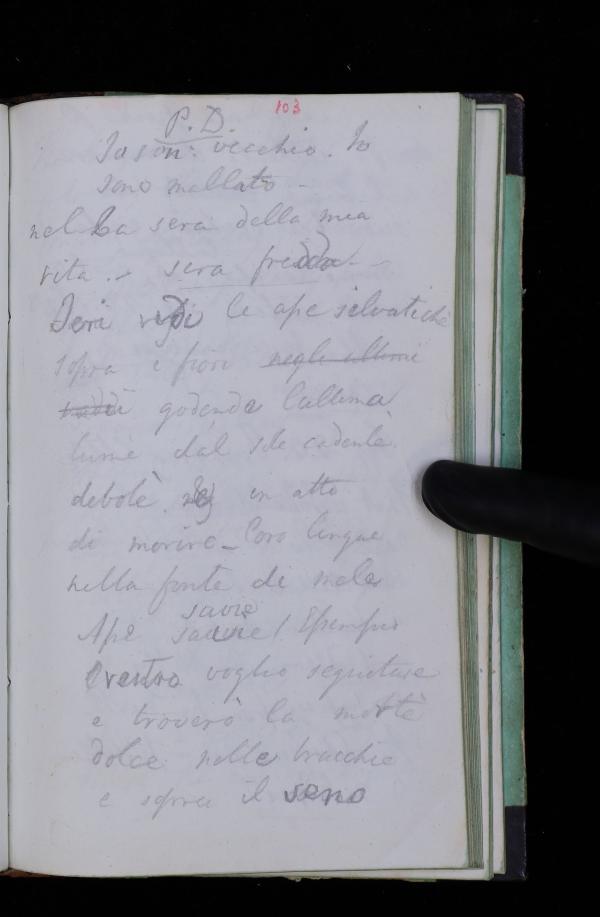 103
P. D.
Io son vecchio. Io
sono mallato -
nel La sera della mia
vita - sera fredda -
Ieri vidi le ape selvatiche
sopra i fiori negli ultimi
raddi godende l'ultima
lume dal sole cadente
debole in atto
di morire - loro lingue
nella fonte di mele
savie
Ape savie! Esempio
vostro voglio seguitare
e troverò la morte
dolce nelle bracchie
e sopra il seno